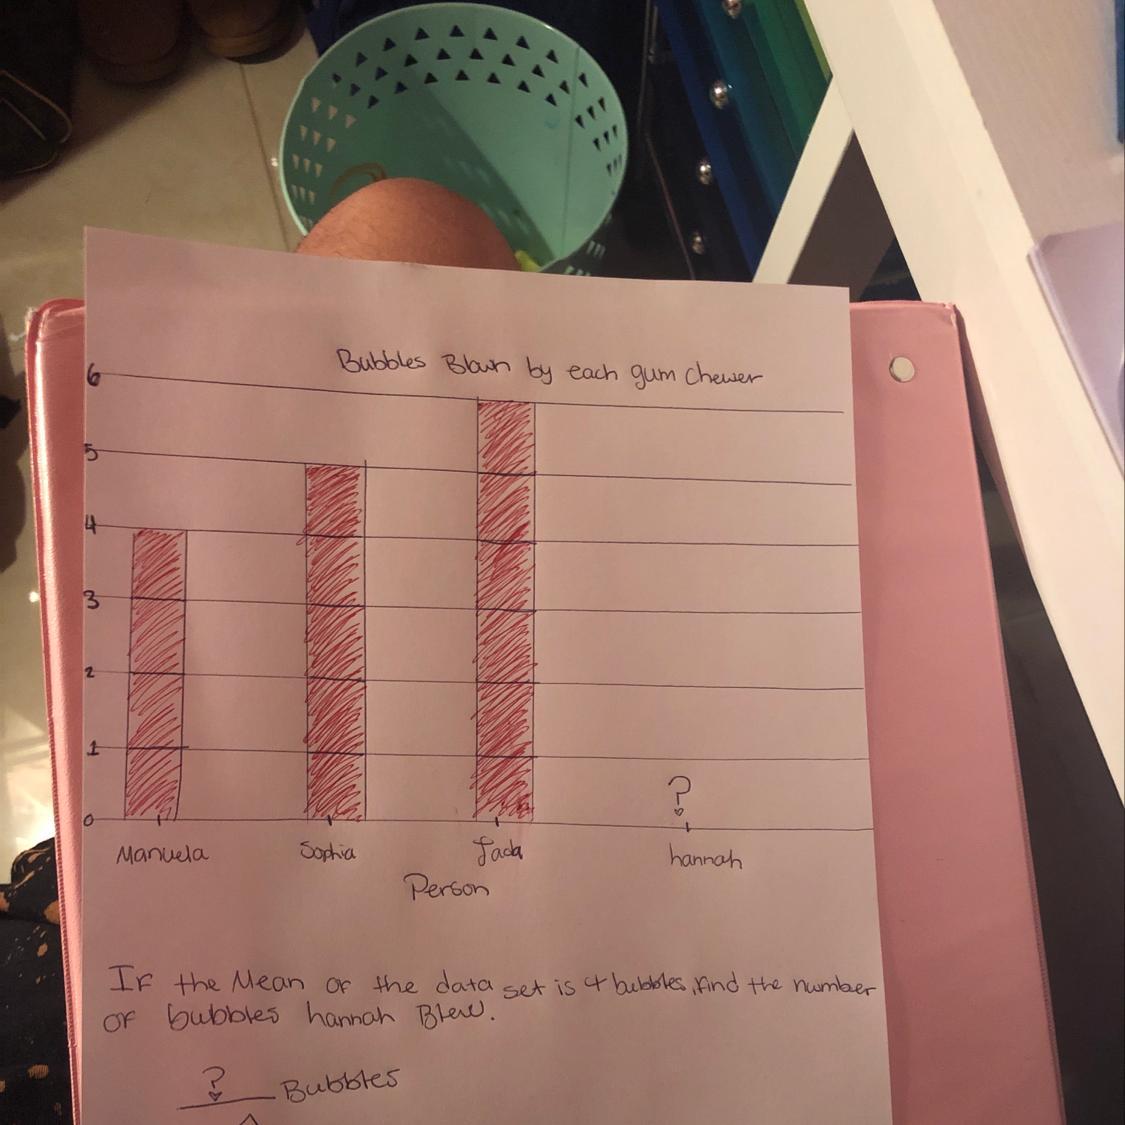 Bubbles Blown by each gum chewer
6
5
4
3
2
1
0
?
Manuela Sophia Jada hannah
Person
If the Mean of the data set is 4 bubbles, find the number
of bubbles hannah Blew.
? Bubbles